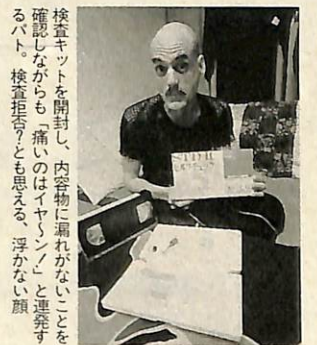 検査キットを開封し、内容物に漏れがないことを
確認しながらも「痛いのはイヤ～ン！」と連発す
るパト。検査拒否？とも思える、浮かない顔